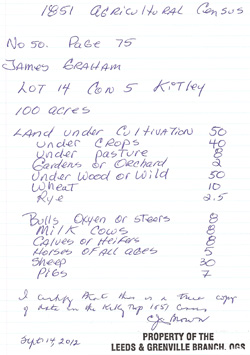 1851 AGRICULTURAL CENSUS
No 50. Page 75
JAMES GRAHAM
LOT 14 CON 5 KITLEY
100 acres
LAND under CULTIVATION 50
under CROPS 40
under pasture 8
Gardens or Orchard 2
Under Wood or Wild 50
Wheat 10
Rye 2.5
Bulls Oxyen or steers 8
MILK COWS 8
Calves or Heifers 8
Horses OF ALL AGES 5
Sheep 30
Pigs 7
I certify that this is a true copy
of data in the Kitley Twp 1851 Census
Sept 14 2012
PROPERTY OF THE
LEEDS & GRENVILLE BRANCH, OGS